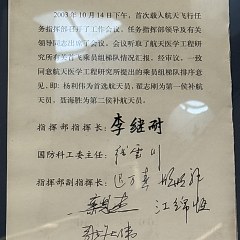 2003年10月14日下午，首次载人航天飞行任务指挥部召开了工作会议，任务指挥部领导及有关领导同志出席了会议。会议听取了航天医学工程研究所有关首飞乘员组梯队情况汇报。经审议，一致同意航天医学工程研究所提出的乘员组梯队排序意见，即：杨利伟为首选航天员，翟志刚为第一候补航天员，聂海胜为第二候补航天员。
指挥部指挥长：李继耐
国防科工委主任：张云川
指挥部副指挥长：迟万春 胡世祥
江绵恒